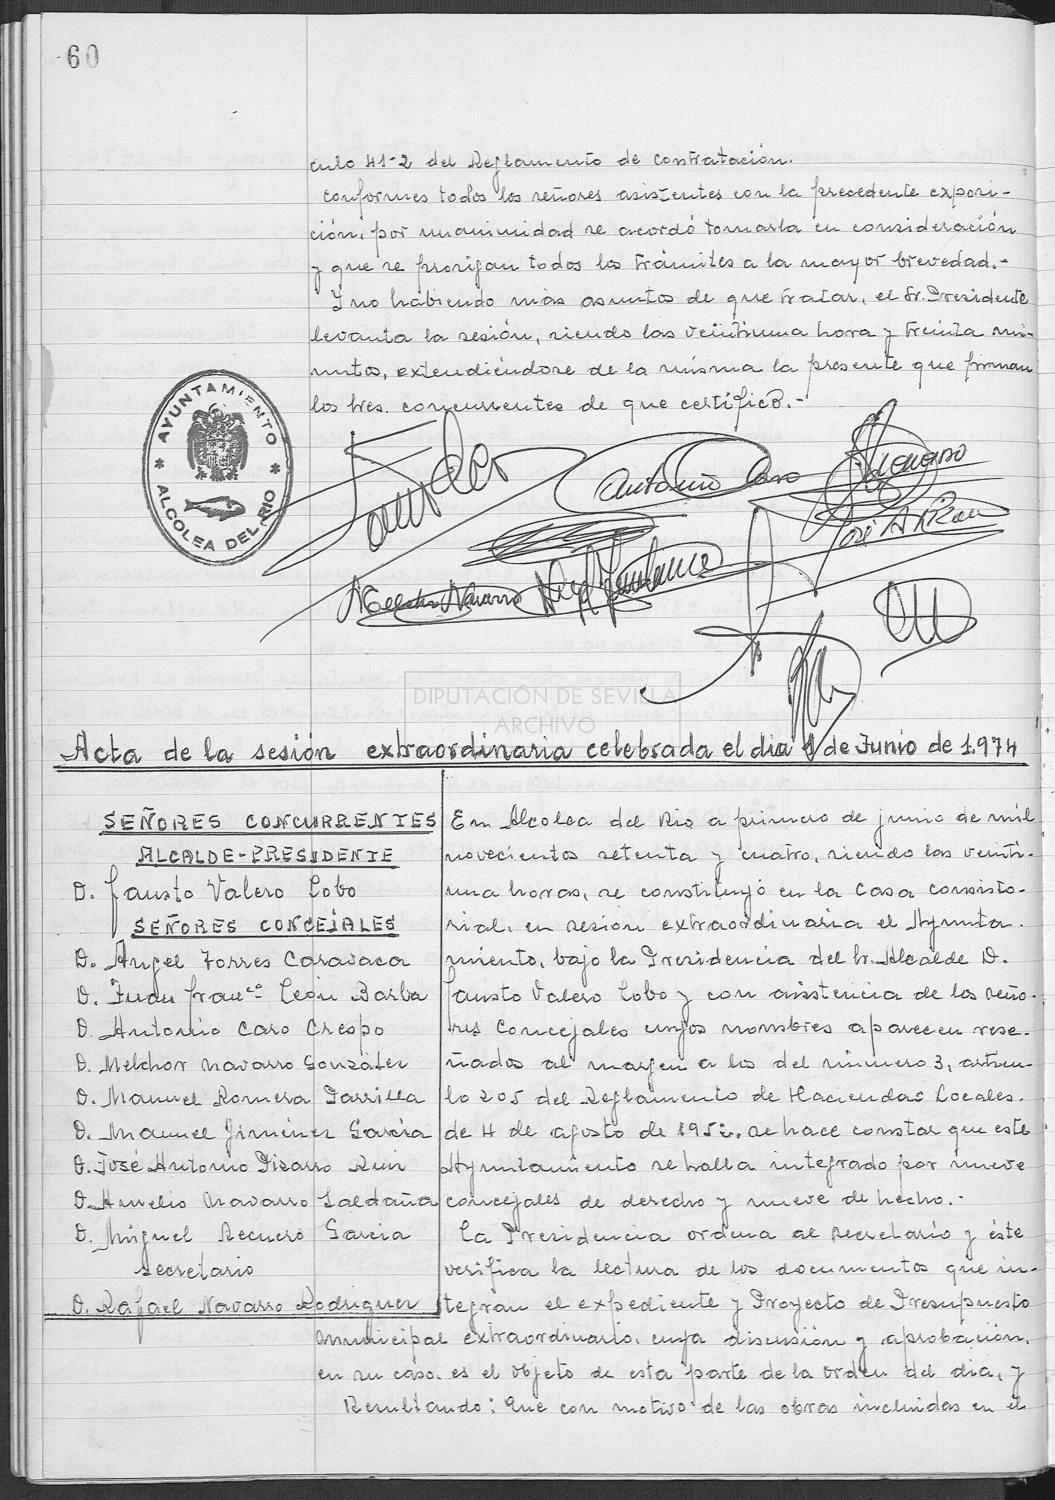 60
culo 41-2 del Reglamento de contratación.
Conformes todos los señores asistentes con la precedente exposi-
ción, por unanimidad se acordó tomarla en consideración
y que se prosigan todos los trámites a la mayor brevedad.-
Y no habiendo más asuntos de que tratar, el Sr. Presidente
levanta la sesión, siendo las veintiuna hora y treinta mi-
nutos, extendiéndose de la misma la presente que firman
los Sres. concurrentes de que certifico.-
AYUNTAMIENTO
* ALCOLEA DEL RIO *
Antonio Caro
José A. Pizarro
Melchor Navarro
DIPUTACIÓN DE SEVILLA
ARCHIVO
Acta de la sesión extraordinaria celebrada el dia 1 de Junio de 1.974
SEÑORES CONCURRENTES
ALCALDE-PRESIDENTE
D. Fausto Valero Lobo
SEÑORES CONCEJALES
D. Angel Torres Caravaca
D. Juan Franco León Barba
D. Antonio Caro Crespo
D. Melchor Navarro González
D. Manuel Romera Parrilla
D. Manuel Jiménez García
D. José Antonio Pizarro Ruiz
D. Aurelio Navarro Saldaña
D. Miguel Recuero Garcia
Secretario
D. Rafael Navarro Rodriguez
En Alcolea del Rio a primero de junio de mil
novecientos setenta y cuatro, siendo las veinti-
una horas, se constituyó en la Casa Consisto-
rial, en sesión extraordinaria el Ayunta-
miento, bajo la Presidencia del Sr. Alcalde D.
Fausto Valero Lobo y con asistencia de los seño-
res Concejales cuyos nombres aparecen rese-
ñados al margen a los del número 3, artícu-
lo 205 del Reglamento de Haciendas Locales.
de 4 de agosto de 1952. se hace constar que este
Ayuntamiento se halla integrado por nueve
concejales de derecho y nueve de hecho.-
La Presidencia ordena al secretario y éste
verifica la lectura de los documentos que in-
tegran el expediente y Proyecto de Presupuesto
municipal extraordinario, cuya discusión y aprobación,
en su caso, es el objeto de esta parte de la orden del dia, y
Resultando: Que con motivo de las obras incluidas en el